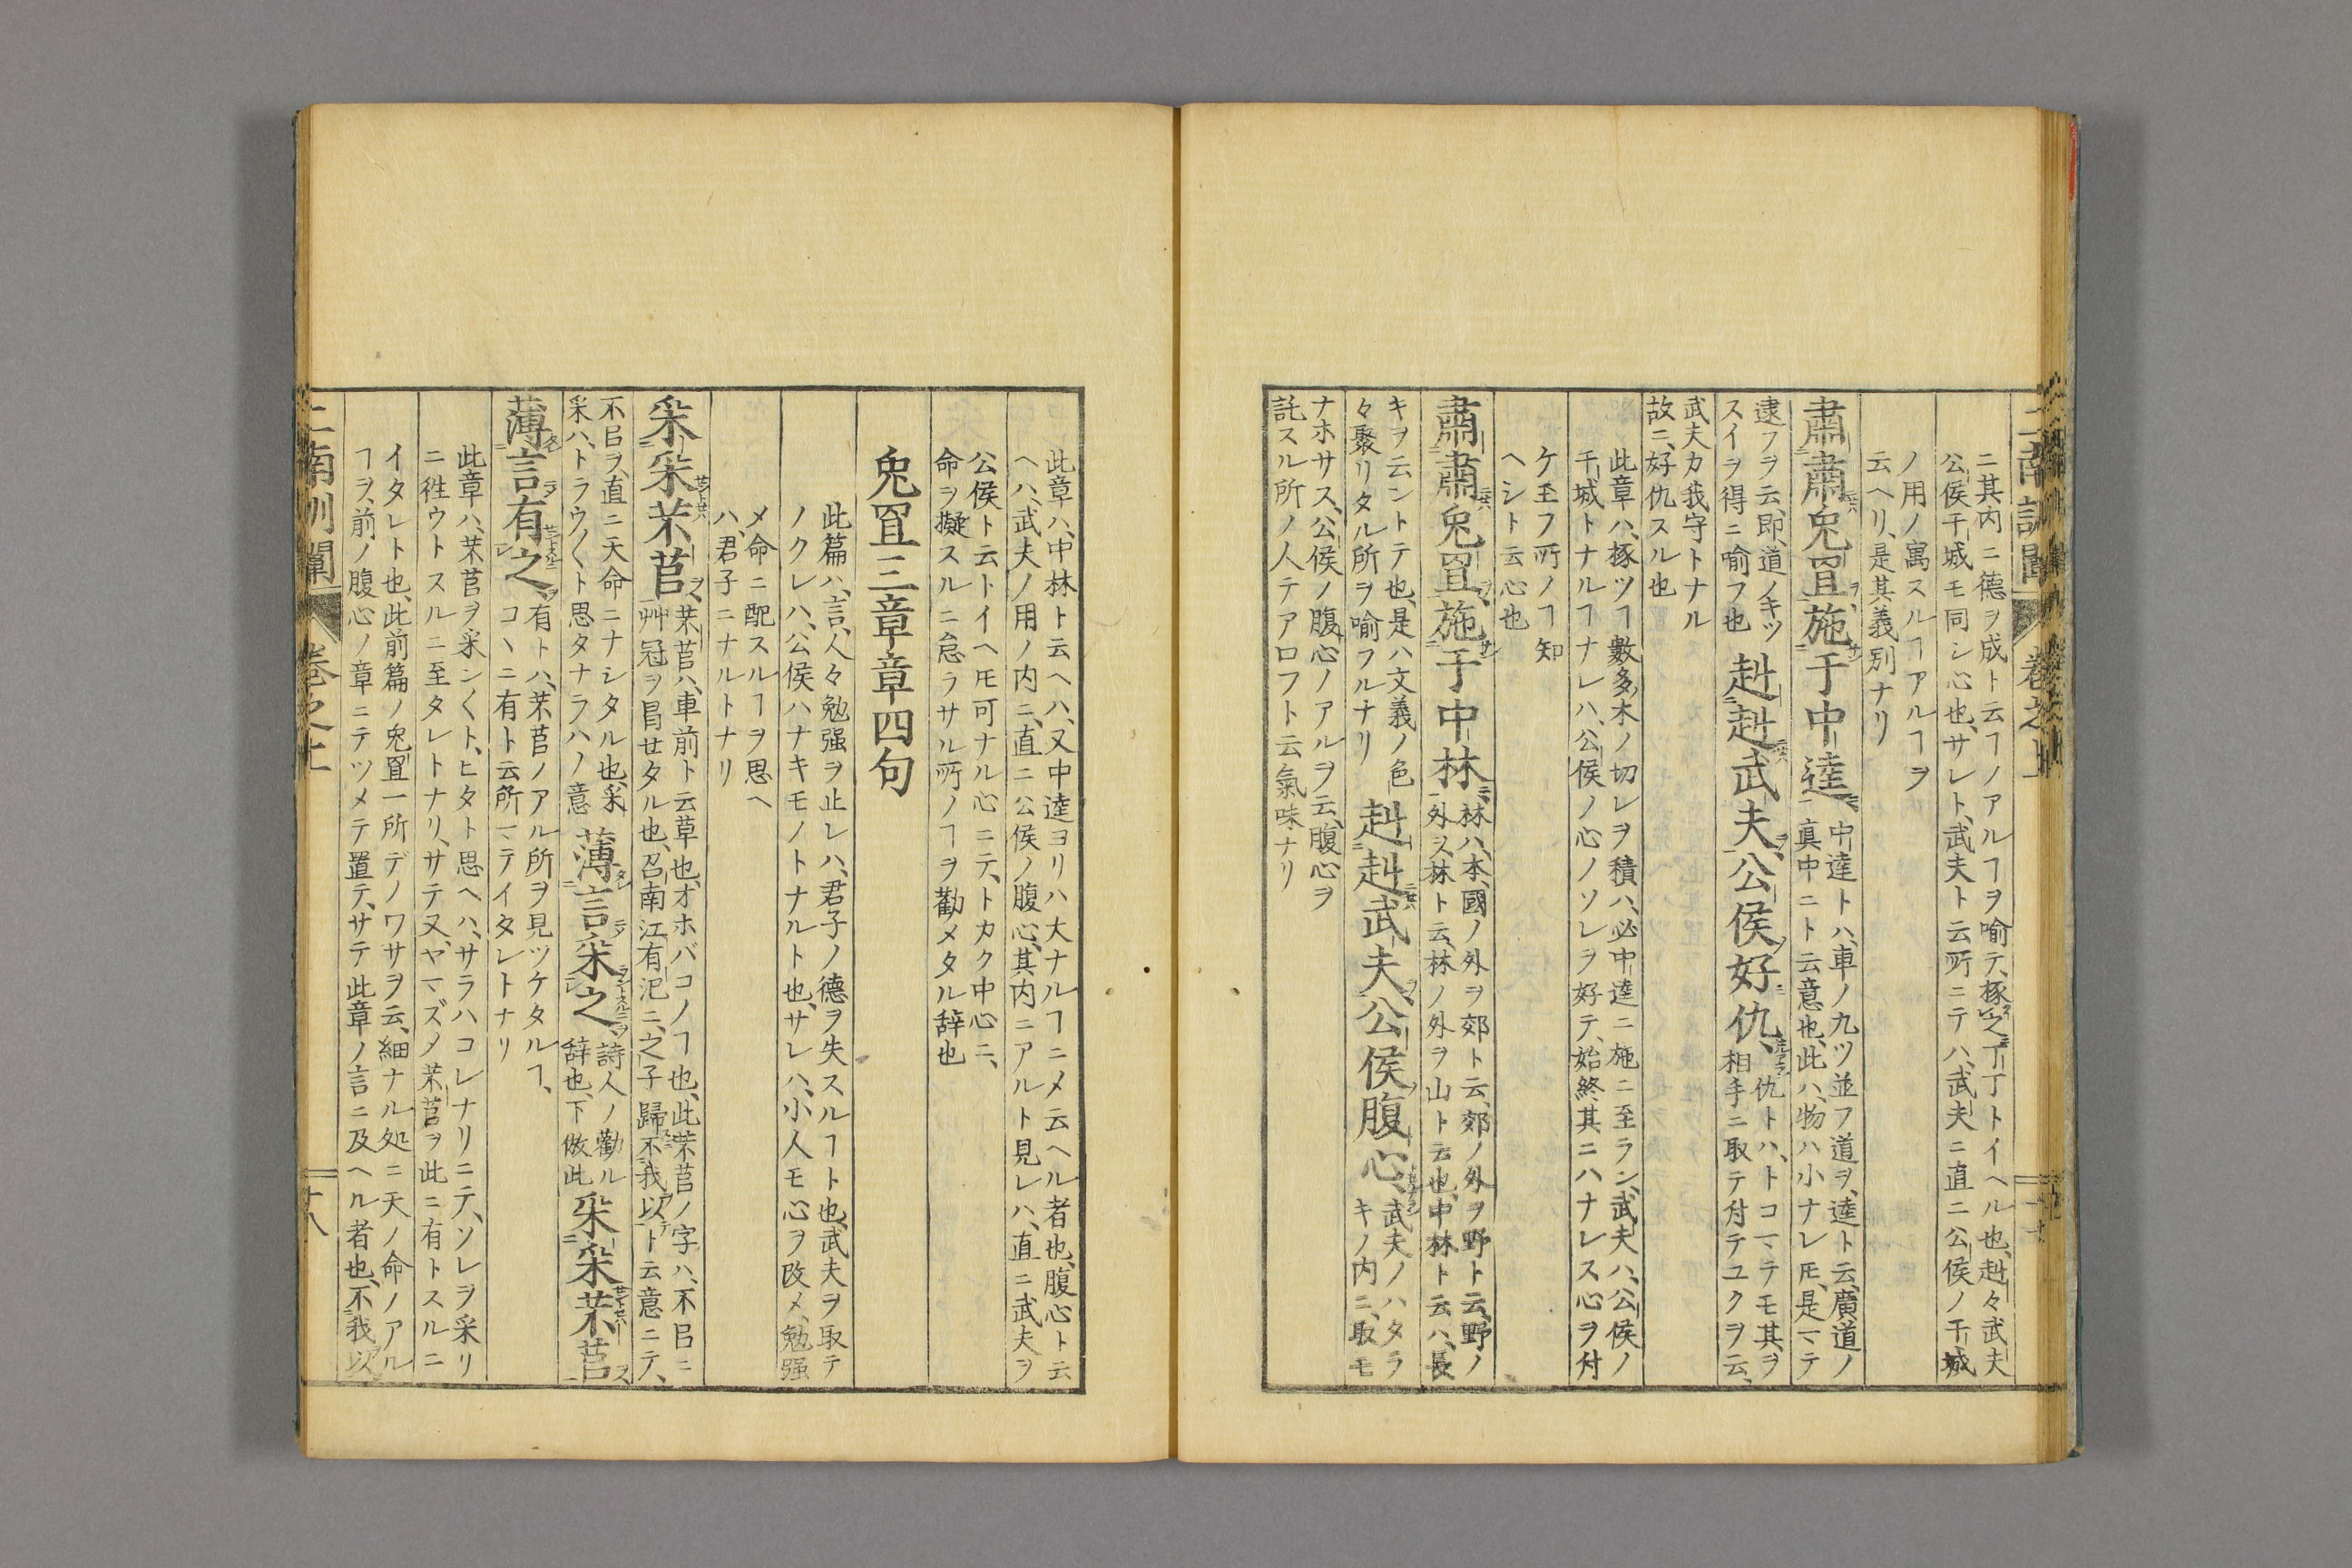 ニ其内ニ德ヲ成ト云ヿノアルヿヲ喻テ、椓之丁丁トイヘル也、赳々武夫
公侯干城モ同シ心也、サレト、武夫ト云所ニテハ、武夫ニ直ニ公侯ノ干城
ノ用ノ寓スルヿアルヿヲ
云ヘリ、是其義別ナリ
肅肅兎罝、施于中逵、
中逵トハ、車ノ九ツ並フ道ヲ、逵ト云、廣道ノ
真中ニト云意也、此ハ、物ハ小ナレ𪜈、是マテ
逮フヲ云、即、道ノキツ
スイヲ得ニ喻フ也
赳赳武夫、公侯好仇、
仇トハ、トコマテモ其ヲ
相手ニ取テ付テユクヲ云、
武夫カ我守トナル
故ニ、好仇スル也
此章ハ、椓ツヿ數多木ノ切レヲ積ハ、必中逵ニ施ニ至ラン、武夫ハ、公侯ノ
干城トナルヿナレハ、公侯ノ心ノソレヲ好テ、始終其ニハナレス心ヲ付
ケ玉フ所ノヿ知
ヘシト云心也
肅肅兎罝、施于中林、
林ハ、本、國ノ外ヲ郊ト云、郊ノ外ヲ野ト云、野ノ
外ヲ林ト云、林ノ外ヲ山ト云也、中林ト云ハ、長
キヲ云ントテ也、是ハ文義ノ色
々聚リタル所ヲ喻フルナリ
赳赳武夫、公侯腹心、
武夫ノハタラ
キノ内ニ、取モ
ナホサス、公侯ノ腹心ノアルヲ云、腹心ヲ
託スル所ノ人テアロフト云氣味ナリ
此章ハ、中林ト云ヘハ、又中逵ヨリハ大ナルヿニメ云ヘル者也、腹心ト云
ヘハ、武夫ノ用ノ内ニ、直ニ公侯ノ腹心、其内ニアルト見レハ、直ニ武夫ヲ
公侯ト云トイヘ𪜈可ナル心ニテ、トカク中心ニ、
命ヲ擬スルニ怠ラサル所ノヿヲ勸メタル辞也
兎罝三章章四句
此篇ハ、言、人々勉强ヲ止レハ、君子ノ德ヲ失スルヿト也、武夫ヲ取テ
ノクレハ、公侯ハナキモノトナルト也、サレハ、小人モ心ヲ改メ、勉强
メ命ニ配スルヿヲ思ヘ
ハ、君子ニナルトナリ
采采芣苢、
芣苢ハ、車前ト云草也、オホバコノヿ也、此芣苢ノ字ハ、不㠯ニ
艸冠ヲ冒セタル也、召南江有汜ニ、之子歸不我以ト云意ニテ、
不㠯ヲ、直ニ天命ニナシタル也、采
采ハ、トラウ〱ト思タナラハノ意
薄言采之、
詩人ノ勸ル
辞也、下倣此
采采芣苢
薄言有之、
有トハ、芣苢ノアル所ヲ見ツケタルヿ、
コヽニ有ト云所マテイタレトナリ
此章ハ、芣苢ヲ采ン〱ト、ヒタト思ヘハ、サラハコレナリニテ、ソレヲ采リ
ニ徃ウトスルニ至タレトナリ、サテ又、ヤマズメ芣苢ヲ此ニ有トスルニ
イタレト也、此前篇ノ兎罝一所デノワサヲ云、細ナル処ニ天ノ命ノアル
ヿヲ、前ノ腹心ノ章ニテツメテ置テ、サテ此章ノ言ニ及ヘル者也、不我以
二南訓闡 卷之上 十八